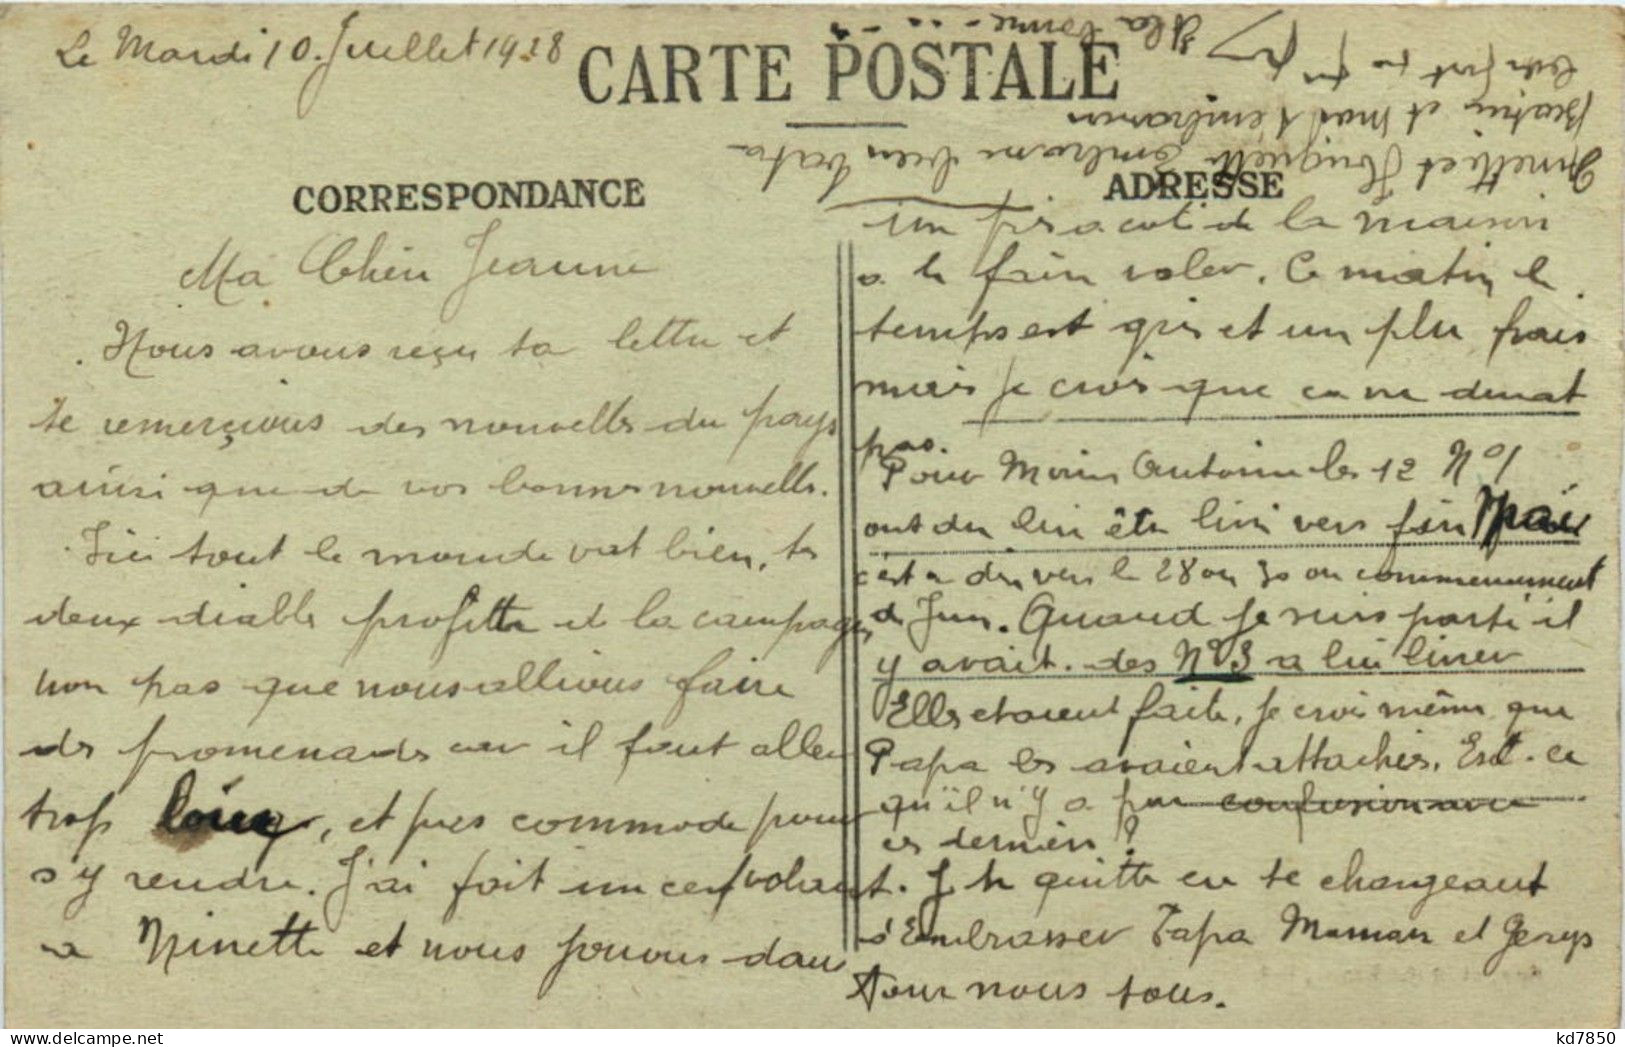 Le Mardi 10 Juillet 1928
CARTE POSTALE
CORRESPONDANCE
Ma Chère Jeanne
Nous avons reçu ta lettre et
te remerçions des nouvelles du pays
ainsi que de vos bonnes nouvelles.
Ici tout le monde vat bien, les
deux diables profitte de la campagne
non pas que nous allions faire
des promenades car il faut aller
trop loing, et pas commode pour
s'y rendre. J'ai fait un cerf volant
a Ninette et nous pouvons dans
ADRESSE
un de la maison
a le faire voler. Ce matin le
temps est gris et un plu frais
mais je crois que ca ne durat
pas.
Pour Antoine les 12 N°1
ont du lui être livré vers fin Mai
c'est a dire vers le 28 ou 30 ou commencement
de Juin. Quand je suis parti il
y avait des N°3 a lui livrer
Elle etaient faite, je crois même que
Papa les avaient attachés. Est-ce
qu'il n'y a pas confusion avec
ces derniers?
Je te quitte en te chargeant
d'Embrasser Papa Maman et
Pour nous tous.
Ninette et Huguette Embrasse bien tata
et t'embrasser
A la tienne
kd7850